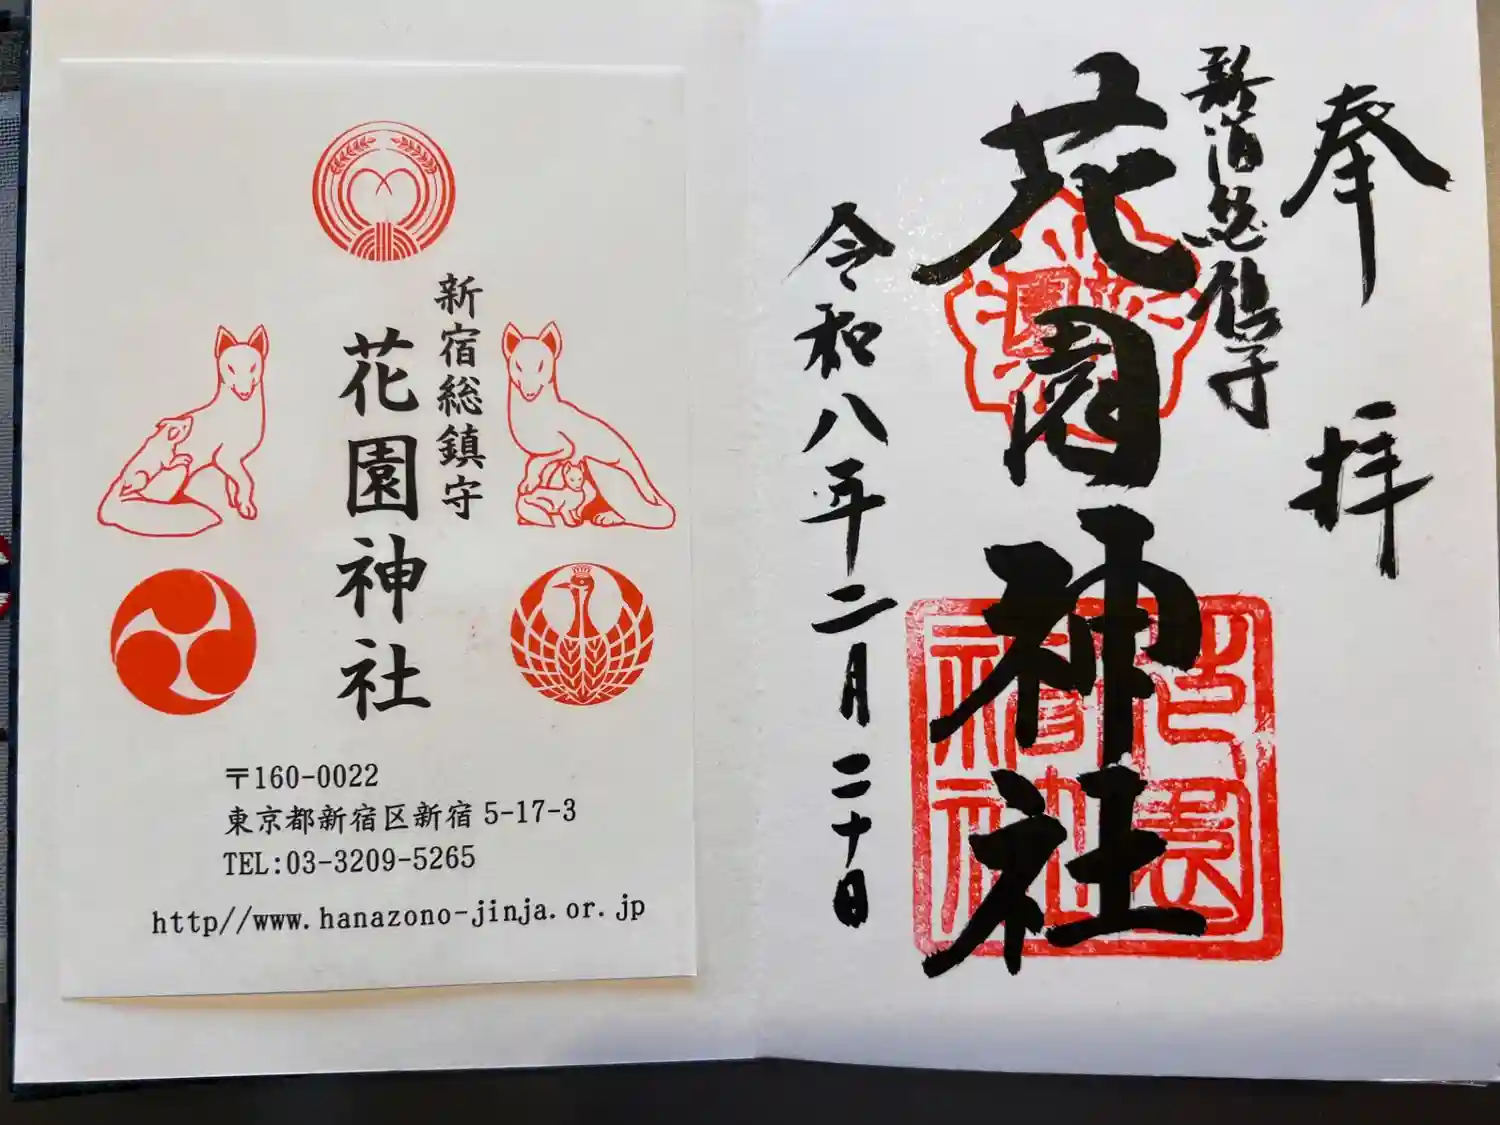 奉拝
新宿総鎮守
花園神社
令和八年二月二十日
花園神社
新宿総鎮守
花園神社
〒160-0022
東京都新宿区新宿5-17-3
TEL:03-3209-5265
http//www.hanazono-jinja.or.jp